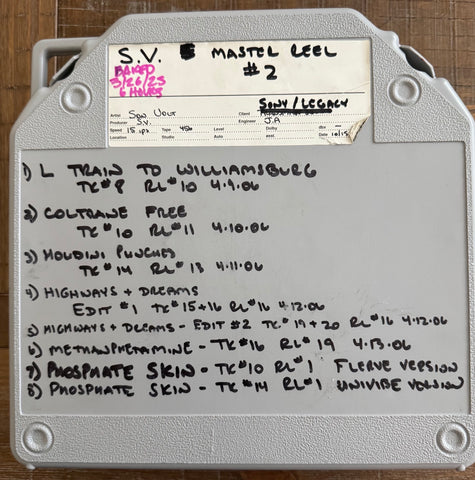 S.V. MASTER REEL
#2
BAKED
3/26/25
6 HOURS
SONY/LEGACY
Artist Son Volt Client
Producer S.V. Engineer J.A
Speed 15 ips Tape 456 Level Dolby dbx —
Location Studio Auto asst. Date 10/15
1) L TRAIN TO WILLIAMSBURG
TK #8 RL #10 4.9.06
2) COLTRANE FREE
TK #10 RL #11 4.10.06
3) HOUDINI PUNCHES
TK #14 RL #13 4.11.06
4) HIGHWAYS + DREAMS
EDIT #1 TK #15+16 RL #16 4.12.06
5) HIGHWAYS + DREAMS - EDIT #2 TK #19+20 RL #16 4.12.06
6) METHAMPHETAMINE - TK #16 RL #19 4.13.06
7) PHOSPHATE SKIN - TK #10 RL #1 FLERVE VERSION
8) PHOSPHATE SKIN - TK #14 RL #1 UNIVIBE VERSION